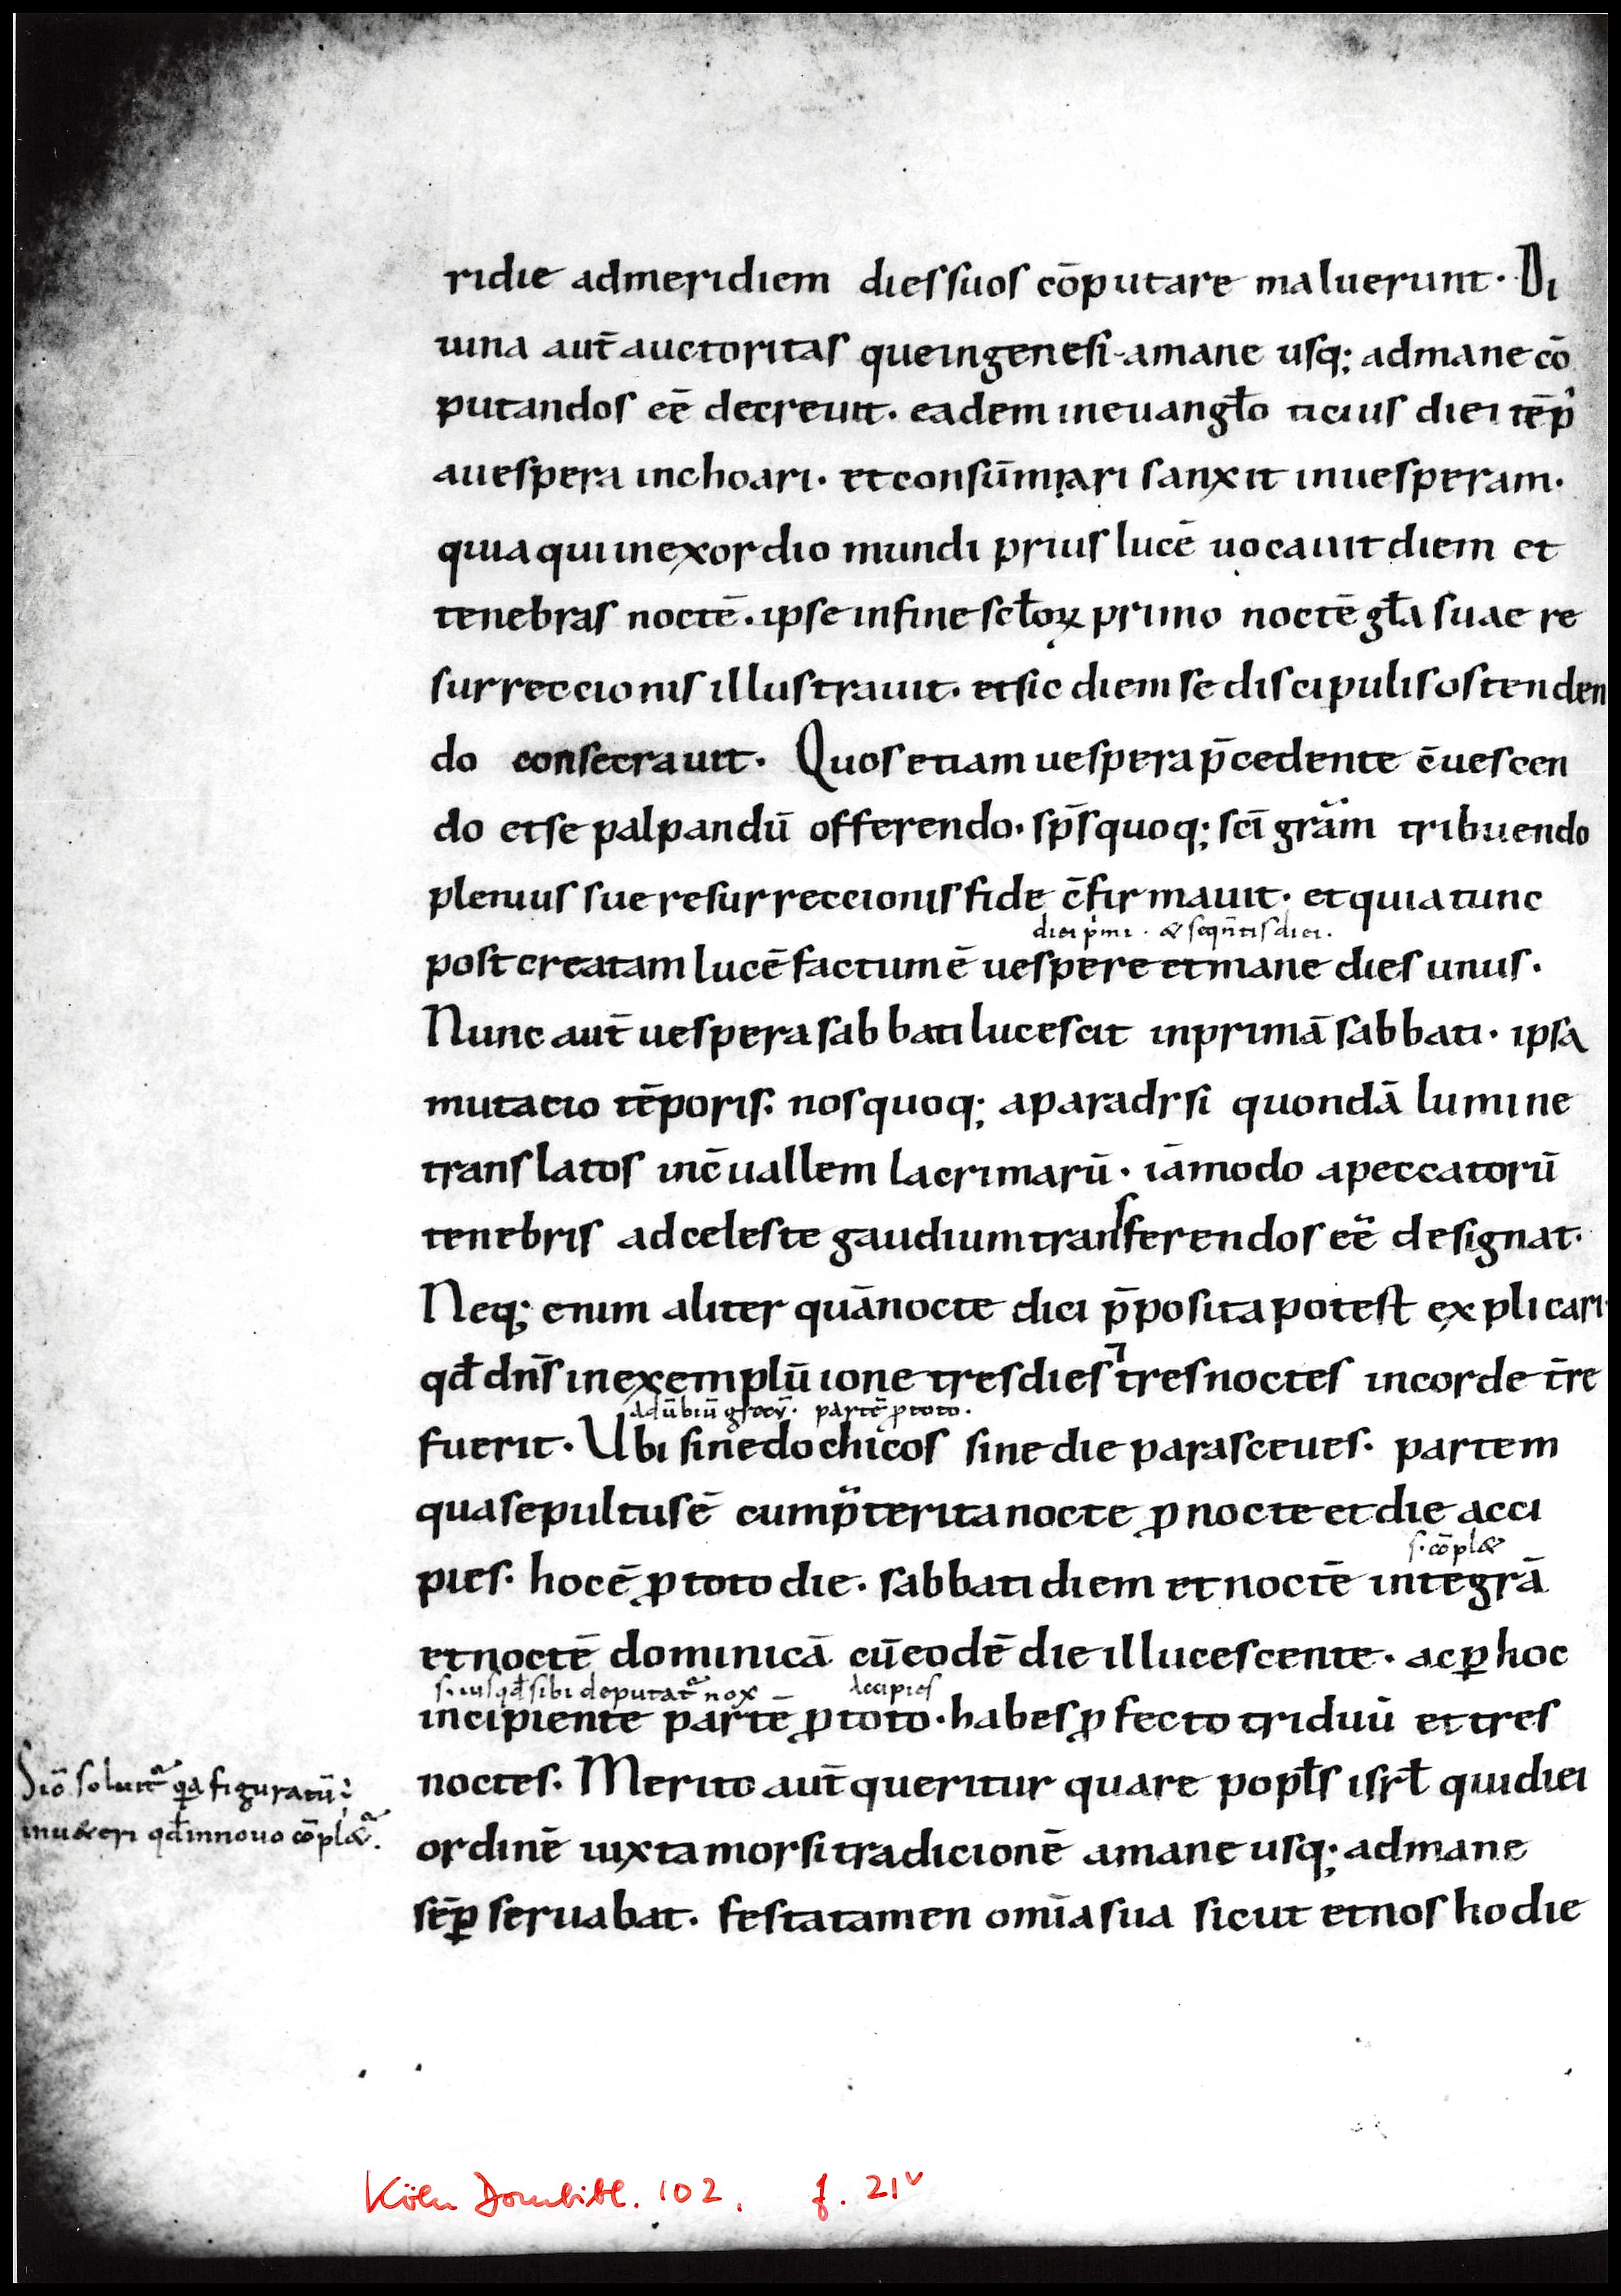 ridie admeridiem dies suos cōputare maluerunt· Di
uina aut̄ auctoritas que in genesi amane usq; admane cō
putandos eē decreuit· eadem in euangƚo ticius diei tēp᷒
auespera inchoari· et consūmari sanxit in uesperam·
quia qui in exordio mundi prius lucē uocauit diem et
tenebras noctē· ipse in fine scƚoꝝ primo noctē gƚa suae re
surreccionis illustrauit· et sic diem se discipulis ostenden
do consecrauit· Quos etiam uespera p̄cedente c̄uescen
do et se palpandū offerendo· sp̄s quoq; sc̄i grām tribuendo
plenius sue resurreccionis fide c̄firmauit· et quia tunc
diei p̍mi · & seqn̄tis diei·
post creatam lucē factum ē uespere et mane dies unus·
Nunc aut̄ uespera sabbati lucescit in primā sabbati· ipsa
mutacio tēporis· nos quoq; aparadrsi quondā lumine
translatos inc̄uallem lacrimarū· iā modo apeccatorū
tenebris ad celeste gaudium transferendos eē designat·
Neq; enim aliter quā nocte diei p̄posita potest explicari·
qđ dn̄s in exemplū ione tres dies ⁊ tres noctes in corde t̄re
adūbiū grecꝝ· partē ꝓ toto·
fuerit· Ubi sinedochicos sine die parasceues· partem
qua sepultus ē cum p̄terita nocte ꝓ nocte et die acci
s· cōpl&
pies· hoc ē ꝓ toto die· sabbati diem et noctē integrā
et noctē dominicā cū eodē die illucescente· ac ꝑ hoc
s· iusqđ sibi deputat᷒ nox accipies
incipiente partē ꝓ toto· habes ꝓfecto triduū et tres
noctes· Merito aut̄ queritur quare popƚs isrƚ qui diei
ordinē iuxta morsi tradicionē amane usq; admane
sēꝑ seruabat· festa tamen omīa sua sicut et nos hodie
Sic̄ soluit᷒ qa figuratū÷
in u&eri qđ in nouo cōpl&᷒·
Köln Dombibl. 102, f. 21v